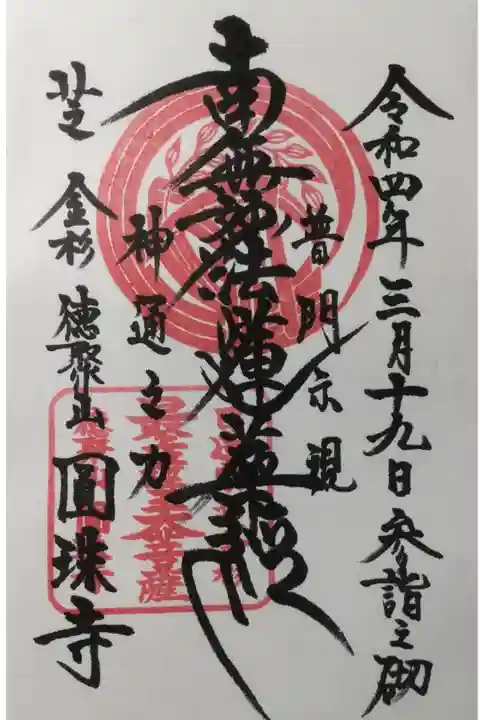 令和四年三月十九日参詣之砌
普門示現
南無妙法蓮華経
神通之力
芝金杉徳聚山圓珠寺